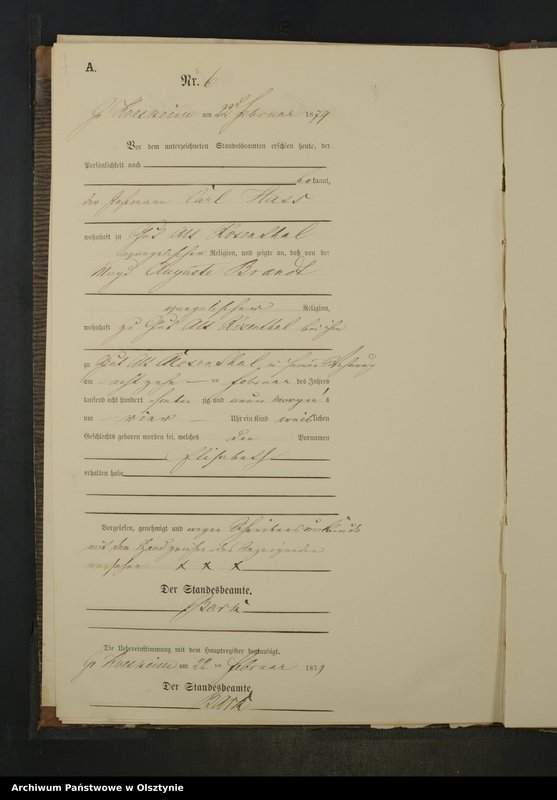 7
A.
Nr. 6
am 22 Februar 1879
Vor dem unterzeichneten Standesbeamten erschien heute, der
Persönlichkeit nach
be kannt,
der Carl Hass
wohnhaft zu Gut Alt Rosenthal
evangelischer Religion, und zeigte an, daß von der
Magd Auguste Brandt
evangelischer Religion,
wohnhaft zu Gut Alt Rosenthal bei ihm
zu Gut Alt Rosenthal in seiner Wohnung
am achtzehn ten Februar des Jahres
tausend acht hundert zig und neun Morgens
um vier Uhr ein Kind weiblichen
Geschlechts geboren worden sei, welches den Vornamen
Elisabeth
erhalten habe
Vorgelesen, genehmigt und wegen Schreibensunkunde
mit dem Handzeichen des Anzeigenden
versehen x x x
Der Standesbeamte.
Die Uebereinstimmung mit dem Hauptregister beglaubigt.
am 22 ten Februar 1879
Der Standesbeamte
Archiwum Państwowe w Olsztynie